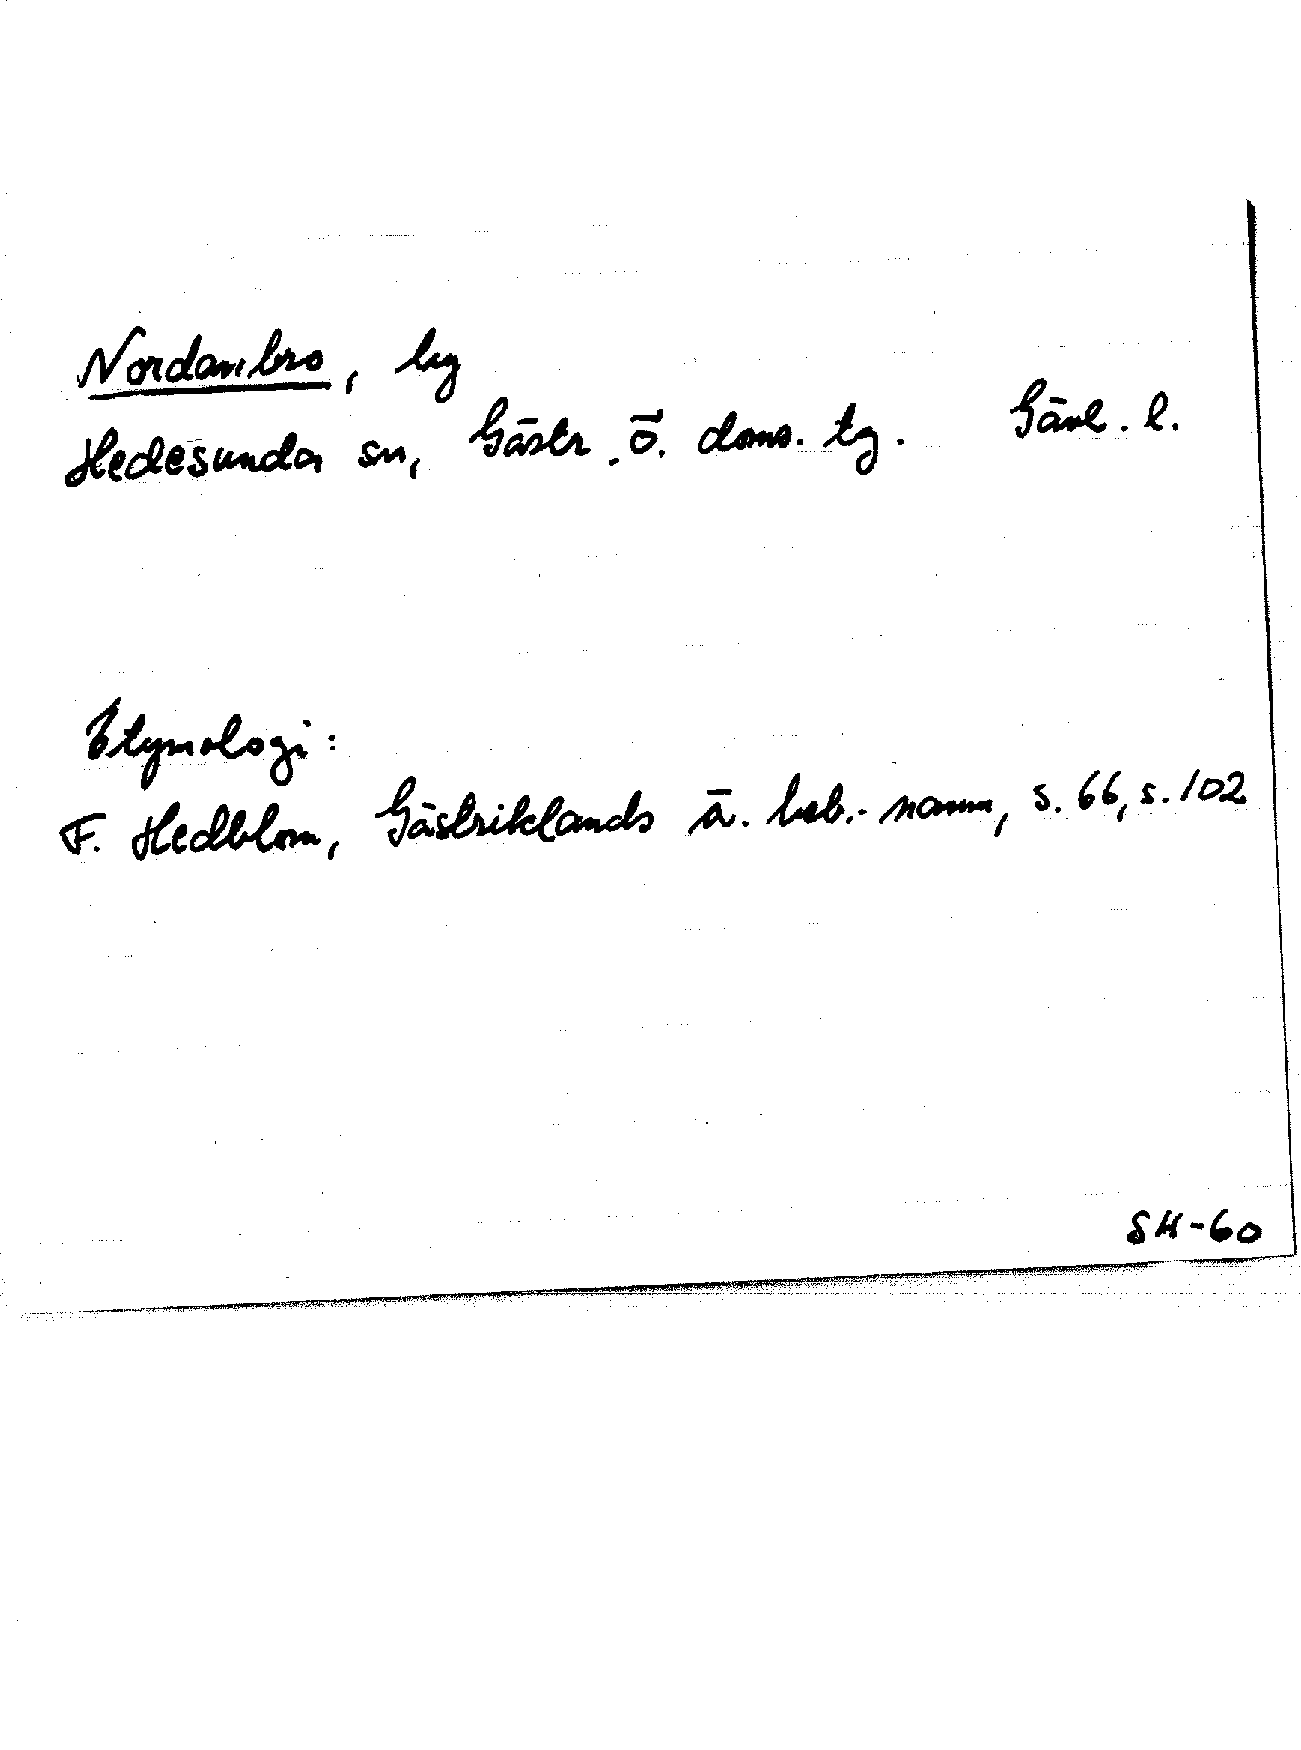 Nordanbro, by
Hedesunda sn, Gästr. ö. doms. tg. Gävl. l.
Etymologi:
F. Hedblom, Gästriklands ä. beb.-namn, s. 66, s. 102
SH-60